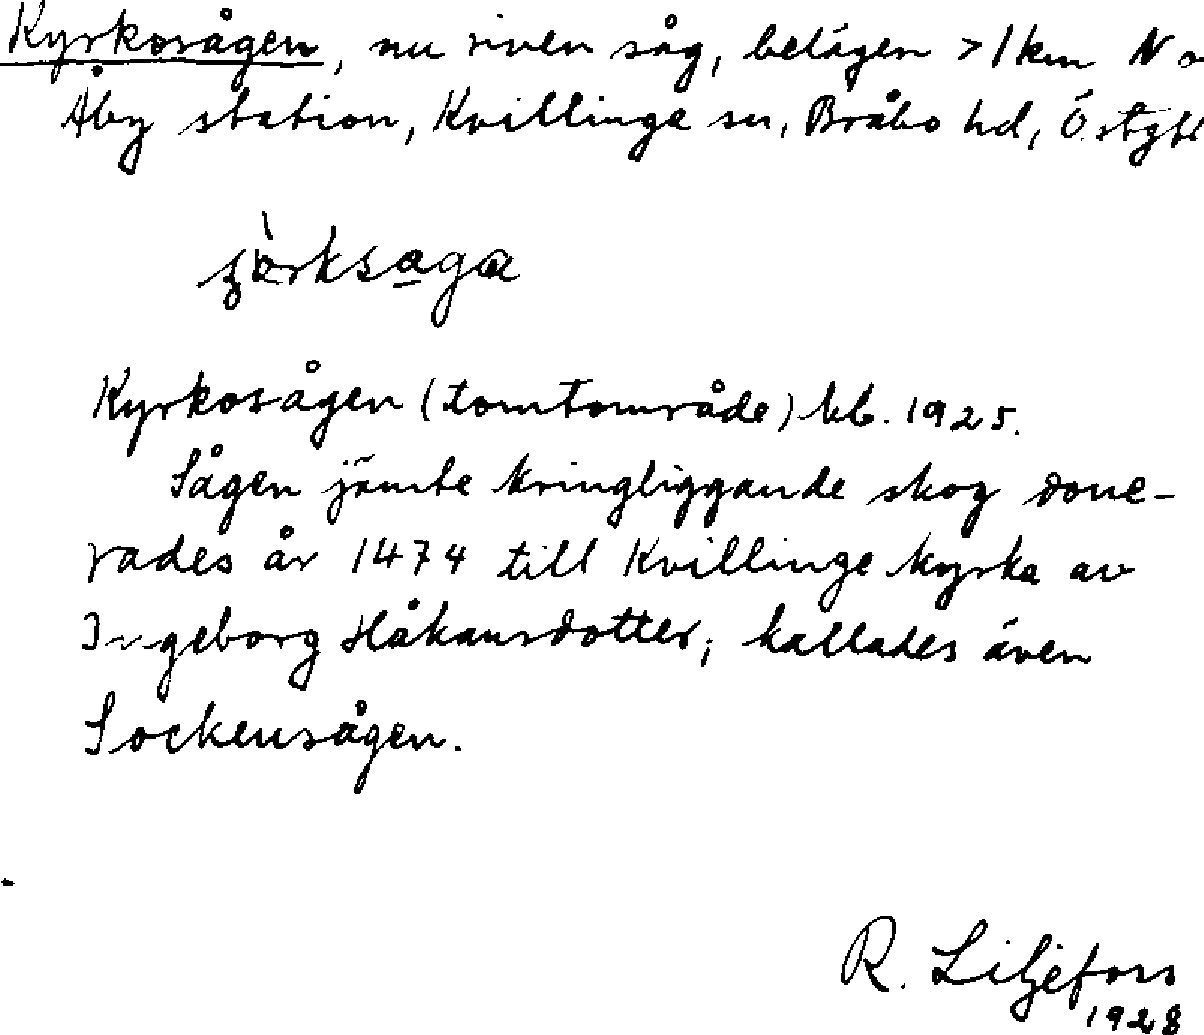 Kyrkosågen, nu riven såg, belägen >1 km N o
Åby station, Kvillinge sn, Bråbo hd, Östgöt
Kyrkosågen (tomtområde) kb. 1925.
Sågen jämte kringliggande skog done-
rades år 1474 till Kvillinge kyrka av
Ingeborg Håkansdotter; kallades även
Sockensågen.
R. Liljefors
1928